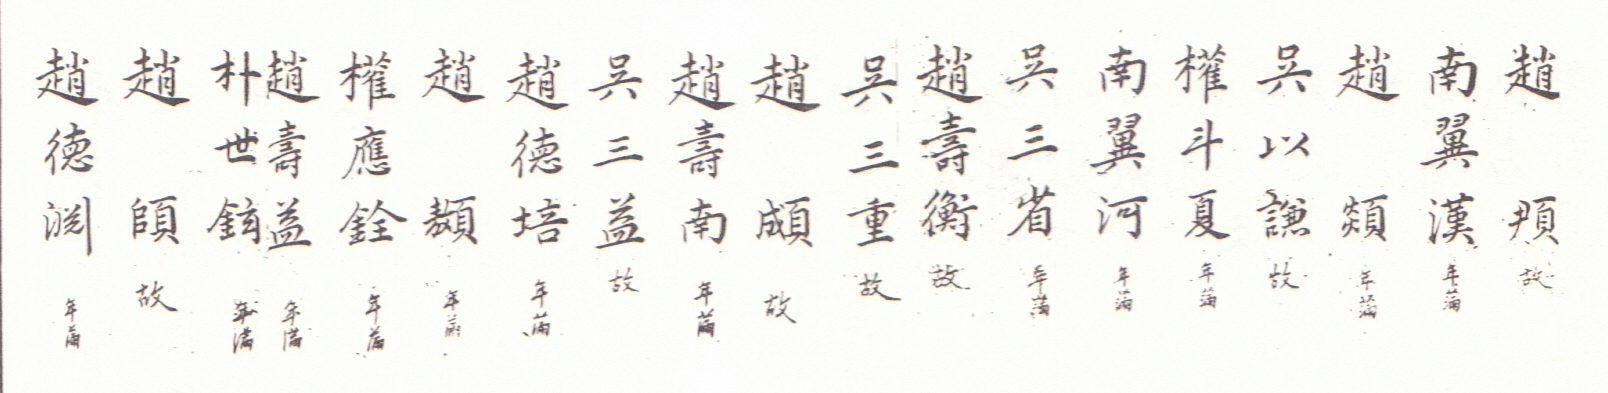 趙 頛 故
南翼漢 年滿
趙 熲 年滿
吳以謙 故
權斗夏 年滿
南翼河 年滿
吳三省 年滿
趙壽衡 故
吳三重 故
趙 頫 故
趙壽南 年滿
吳三益 故
趙德培 年滿
趙 䫨 年滿
權應銓 年滿
趙壽益 年滿
朴世鉉 年滿
趙 頠 故
趙德淵 年滿